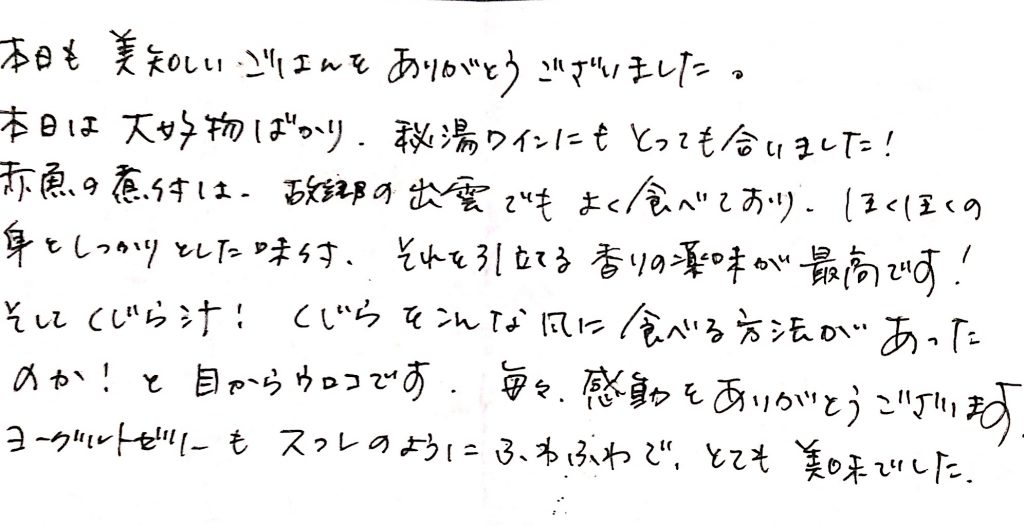 本日も美味しいごはんをありがとうございました。
本日は大好物ばかり、秘湯ワインにもとっても合いました!
赤魚の煮付は、故郷の出雲でもよく食べており、ほくほくの
身としっかりとした味付、それを引立てる香りの薬味が最高です!
そしてくじら汁! くじらをこんな風に食べる方法があった
のか!と目からウロコです。毎々、感動をありがとうございます。
ヨーグルトゼリーもスフレのようにふわふわで、とても美味でした。